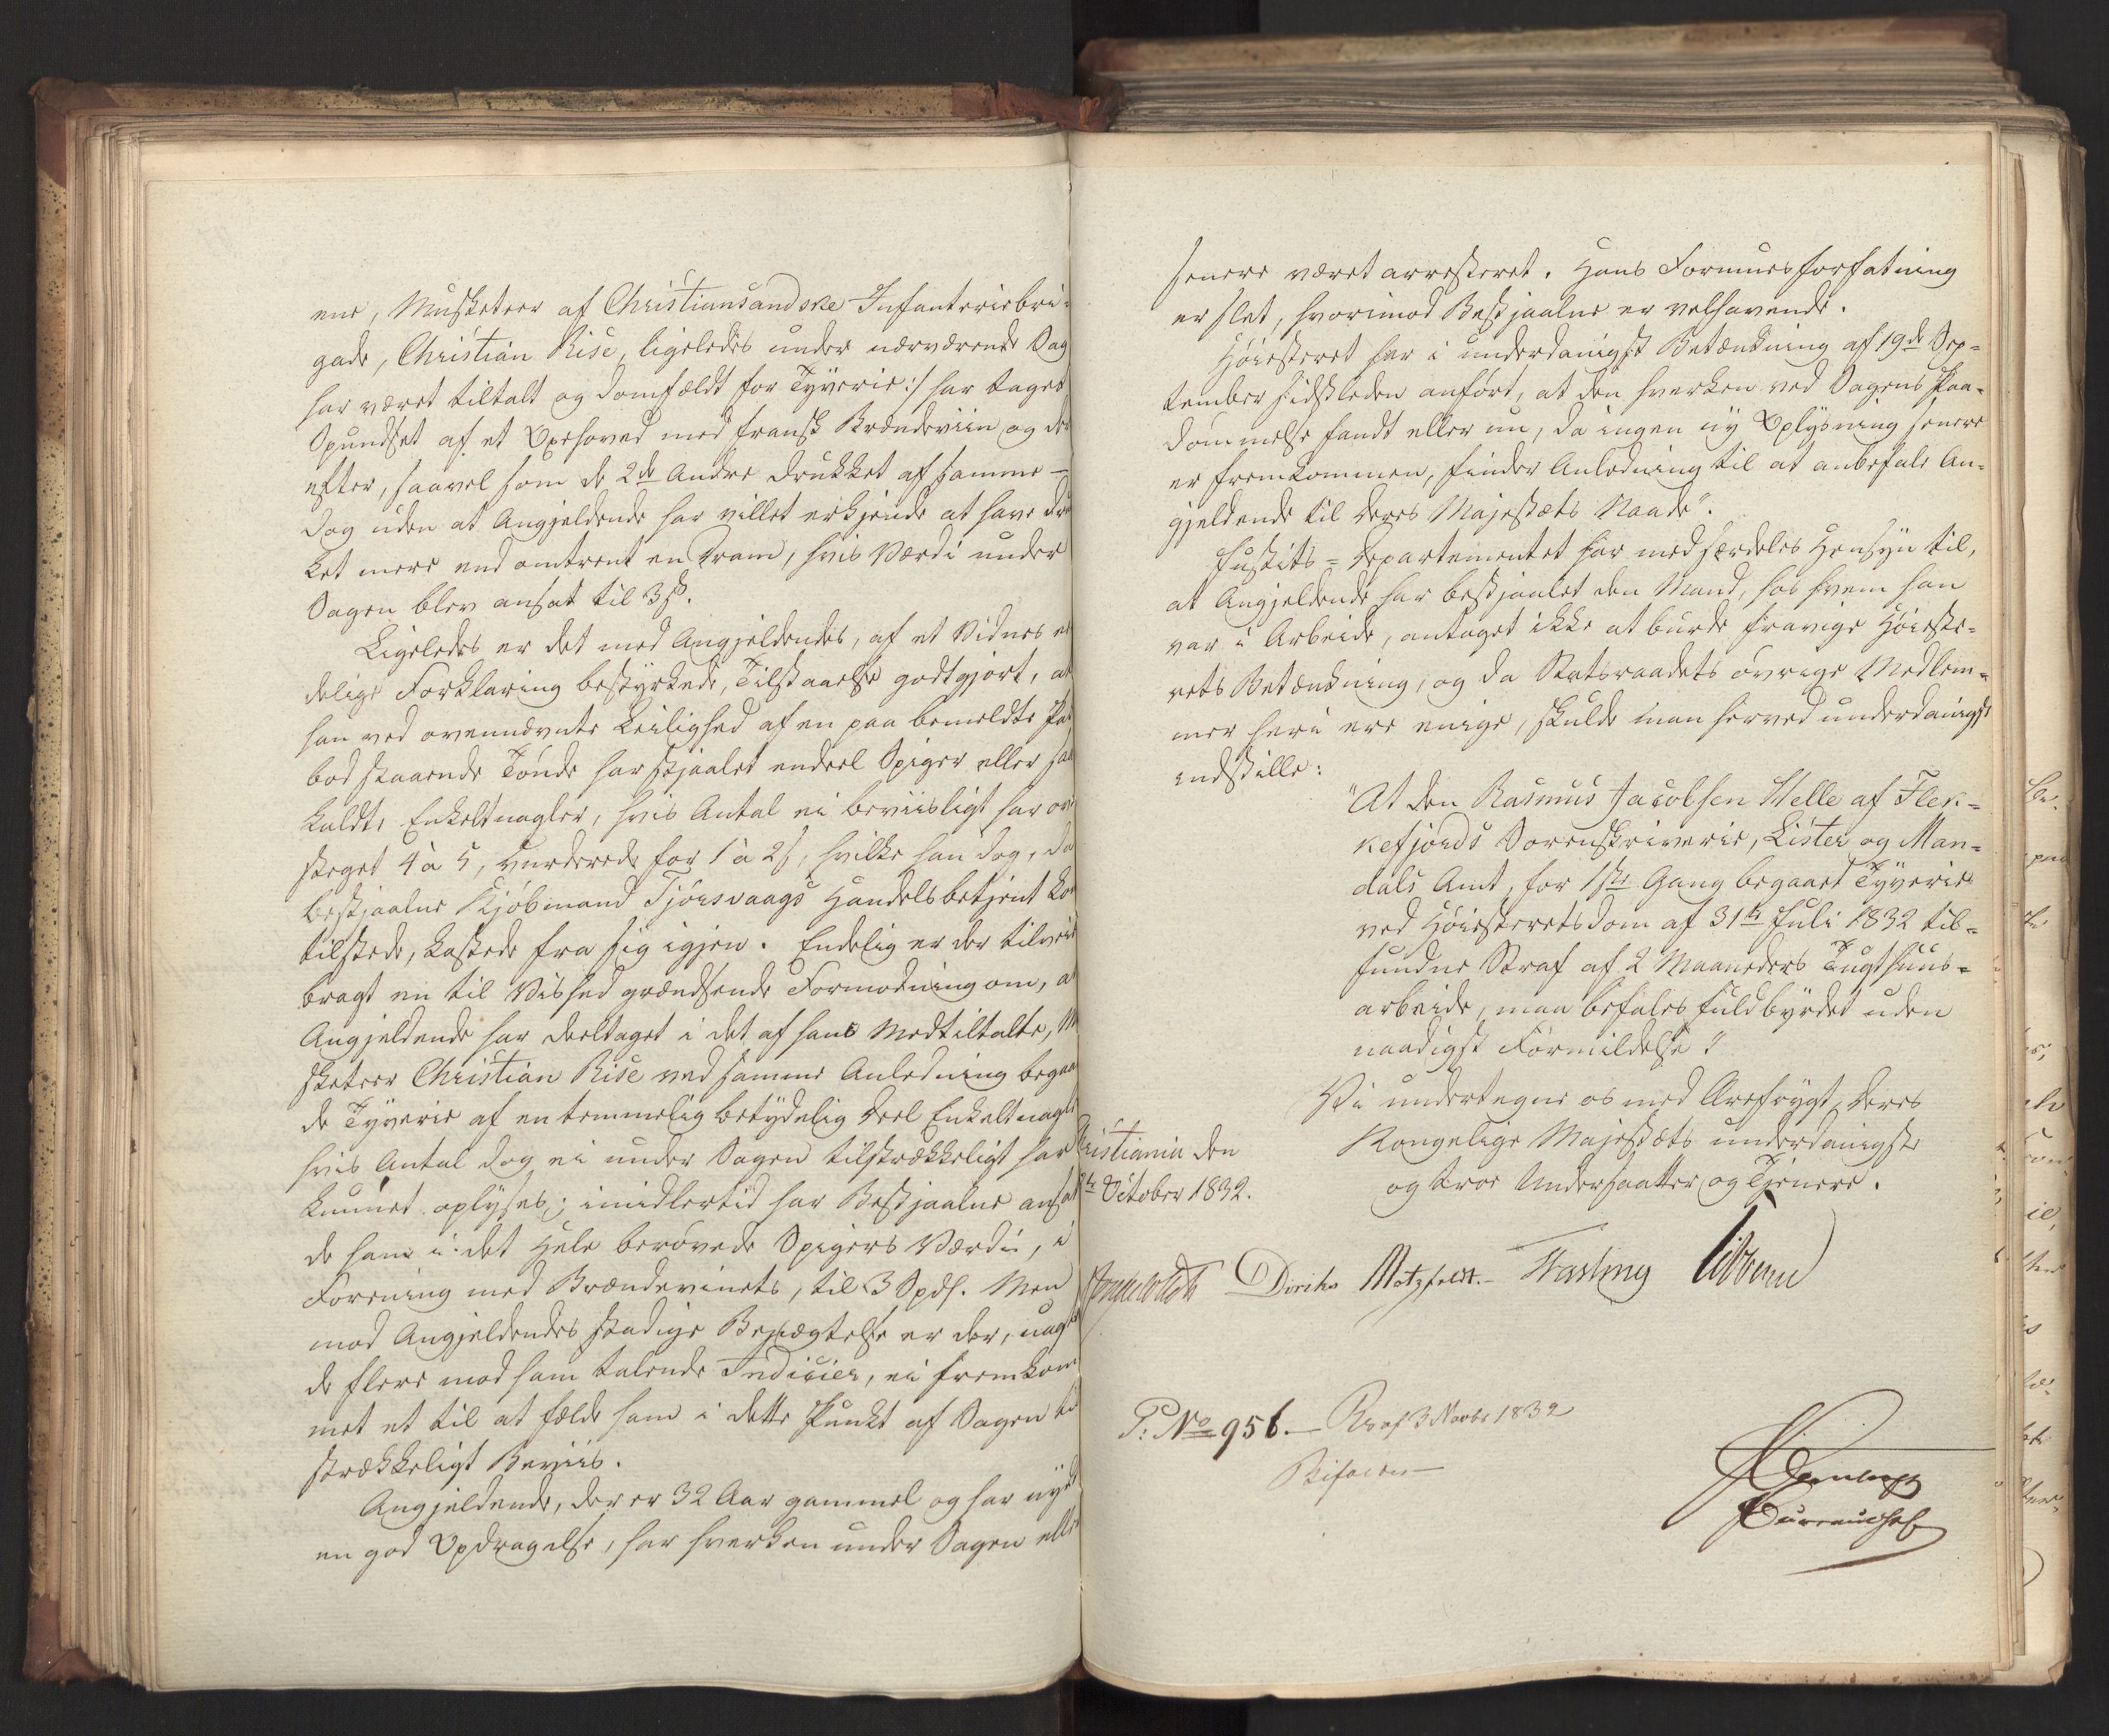 ene, Musketeer af Christiansandske Infanteriebri-
gade, Christian Rise, ligeledes under nærværende Sag
har været tiltalt og domfældt for Tyverie:/ har taget
Spundset af et Oxehoved med fransk Brændeviin og der
efter, saavel som de 2de Andre drukket af samme –
dog uden at Angjeldende har villet erkjende at have druk
ket mere end omtrent en Dram, hvis Værdi under
Sagen blev ansat til 3 ß.
Ligeledes er det med Angjeldendes, af et Vidnes
delige Forklaring bestyrkede, Tilstaaelse godtgjort, at
han ved ovennævnte Leilighed af en paa bemeldte
bod staaende Tønde har stjaalet endeel Spiger eller saa
kaldte Enkeltnagler, hvis Antal ei beviisligt har over
steget 4 à 5, vurderede for 1 à 2 ß, hvilke han dog, da
bestjaalne Kjøbmand Tjørsvaags Handelsbetjent kom
tilstede, kastede fra sig igjen. Endelig er der tilveie
bragt en til Vished grændsende Formodning om, at
Angjeldende har deeltaget i det af hans Medtiltalte, Mu
sketeer Christian Rise ved samme Anledning begaae
de Tyverie af en temmelig betydelig Deel Enkeltnagler
hvis Antal dog ei under Sagen tilstrækkeligt har
kunnet oplyses; imidlertid har Bestjaalne ansat
de ham i det Hele berøvede Spigers Værdi, i
Forening med Brændevinets, til 3 Spds. Men
mod Angjeldendes stadige Benægtelse er der, uagtet
de flere mod ham talende Indicier, ei fremkom
met et til at fælde ham i dette Punkt af Sagen til
strækkeligt Beviis.
Angjeldende, der er 32 Aar gammel og har nydt
en god Opdragelse, har hverken under Sagen eller
senere været arresteret. Hans Formuesforfatning
er slet, hvorimod Bestjaalne er velhavende.
Høiesteret har i underdanigst Betænkning af 19de Sep-
tember sidstleden anført, at den hverken ved Sagens Paa-
dømmelse fandt eller nu, da ingen ny Oplysning senere
er fremkommen, finder Anledning til at anbefale An-
gjeldende til Deres Majestæts Naade".
Justits-Departementet har med særdeles Hensyn til,
at Angjeldende har bestjaalet den Mand, hos hvem han
var i Arbeide, antaget ikke at burde fravige Høieste-
rets Betænkning; og da Statsraadets øvrige Medlem-
mer heri ere enige, skulde man herved underdanigst
indstille:
"At den Rasmus Jacobsen Helle af Flek-
kefjords Sorenskriverie, Lister og Man-
dals Amt, for 1ste Gang begaaet Tyverie
ved Høiesteretsdom af 31te Juli 1832 til-
fundne Straf af 2 Maaneders Tugthuus-
arbeide, maa befales fuldbyrdet uden
naadigst Formildelse."
Vi undertegne os med Ærefrygt, Deres
Kongelige Majestæts underdanigste
og troe Undersaatter og Tjenere.
ristiania den
te October 1832.
Diriks Motzfeldt. Fasting
P: No 956. Rx af 3 Novbr 1832
Bifaldes
Bureauchef